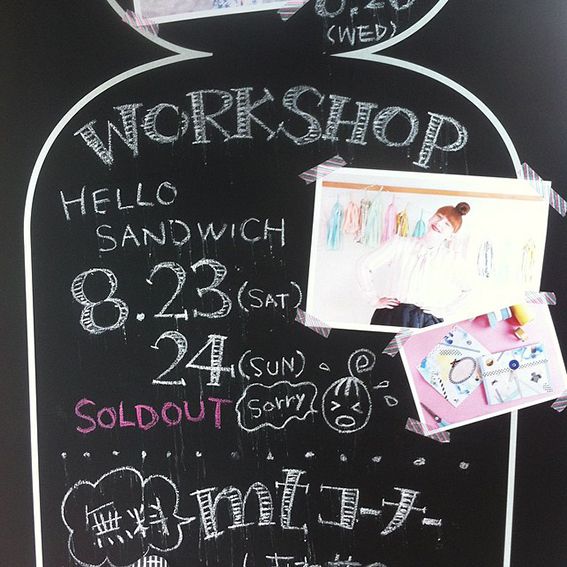 8.20
(WED)
WORKSHOP
HELLO
SANDWICH
8.23(SAT)
24(SUN)
SOLDOUT Sorry
無料 mtコーナー